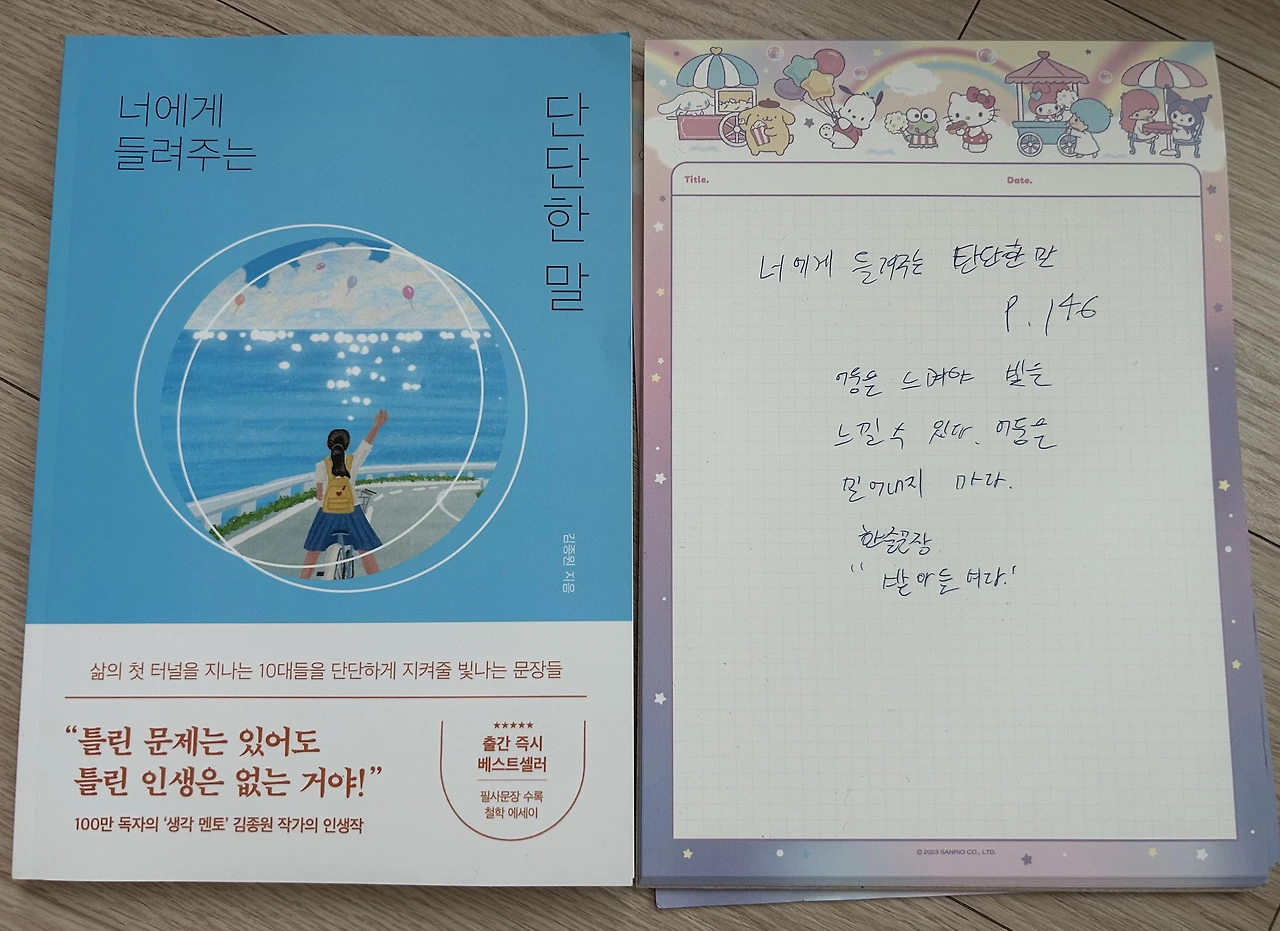 너에게
들려주는
단단한 말
김종원 지음
삶의 첫 터널을 지나는 10대들을 단단하게 지켜줄 빛나는 문장들
“틀린 문제는 있어도
틀린 인생은 없는 거야!”
100만 독자의 ‘생각 멘토’ 김종원 작가의 인생작
★★★★★
출간 즉시
베스트셀러
필사문장 수록
철학 에세이
Title.
Date.
너에게 들려주는 단단한 말
P. 146
어둠을 느껴야 빛을
느낄 수 있다. 어둠을
밀어내지 마라.
"받아들여라."
© 2023 SANRIO CO., LTD.